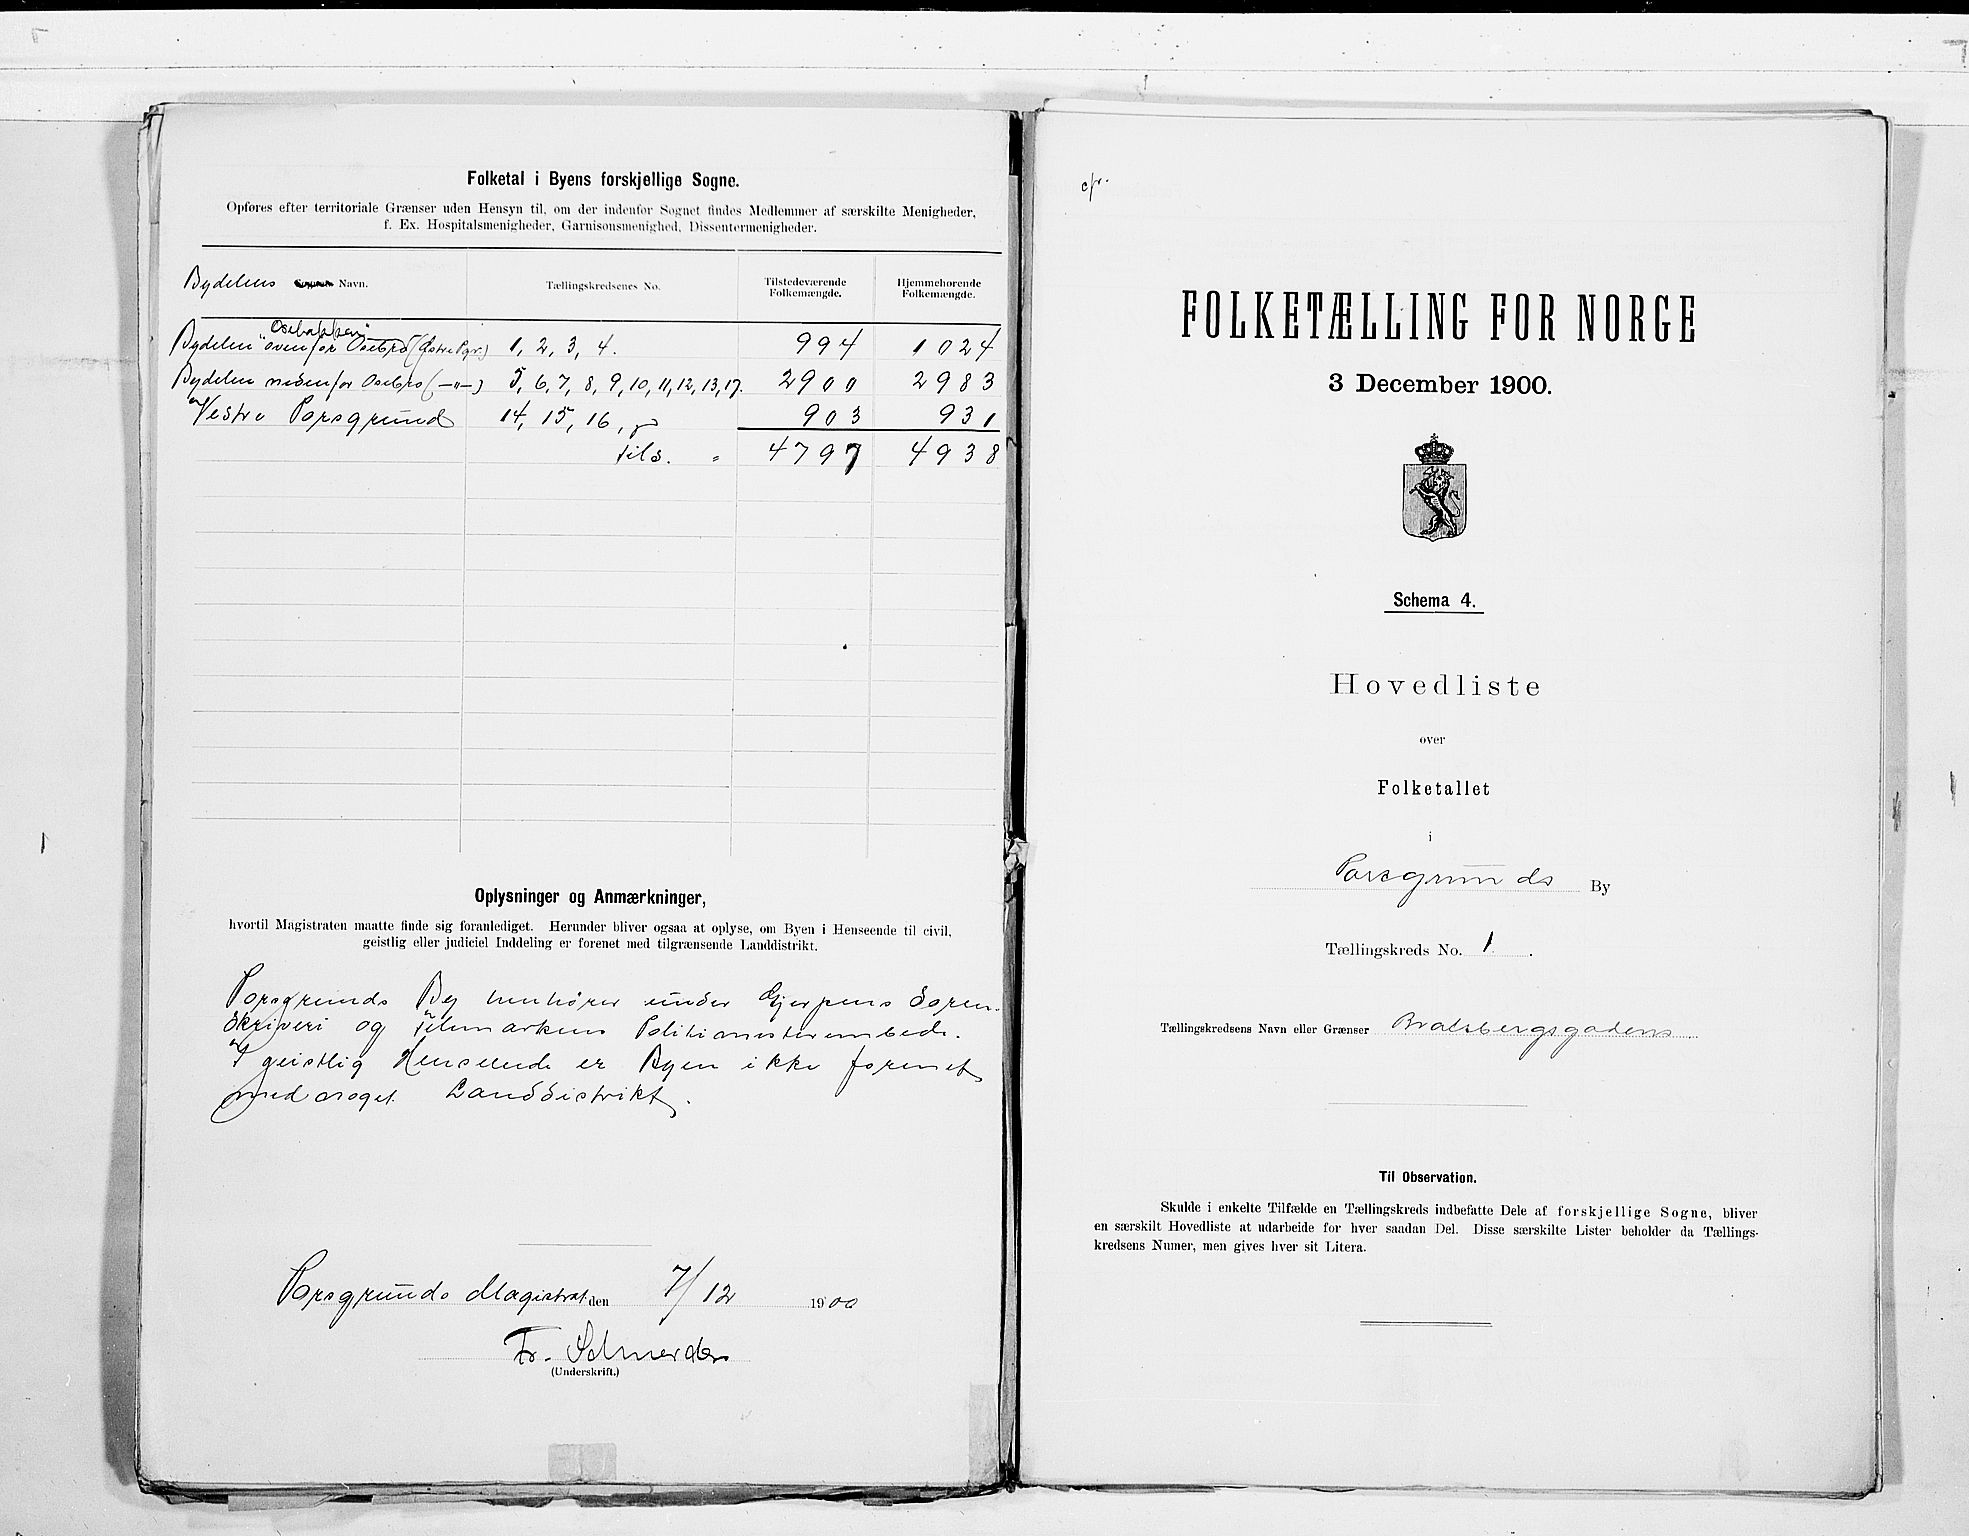 Folketal i Byens forskjellige Sogne.
Opføres efter territoriale Grænser uden Hensyn til, om der indenfor Sognet findes Medlemmer af særskilte Menigheder,
f. Ex. Hospitalsmenigheder, Garnisonsmenighed, Dissentermenigheder.
Bydelens Sognenes Navn. Tællingskredsenes No. Tilstedeværende Folkemængde. Hjemmehørende Folkemængde.
"Osebakken"
Bydelen ovenfor Osebro (Østre Pgr.) 1, 2, 3, 4. 994 1024
Bydelen nedenfor Osebro (—"—) 5, 6, 7, 8, 9, 10, 11, 12, 13, 17. 2900 2983
Vestre Porsgrund 14, 15, 16, 903 931
Tils. = 4797 4938
Oplysninger og Anmærkninger,
hvortil Magistraten maatte finde sig foranlediget. Herunder bliver ogsaa at oplyse, om Byen i Henseende til civil,
geistlig eller judiciel Inddeling er forenet med tilgrænsende Landdistrikt.
Porsgrunds By henhører under Gjerpens Soren-
skriveri og Telemarkens Politimesterembede.
I geistlig Henseende er Byen ikke forenet
med noget Landdistrikt.
Porsgrunds Magistrat den 7/12 1900
Fr.
(Underskrift.)
cfr.
FOLKETÆLLING FOR NORGE
3 December 1900.
Schema 4.
Hovedliste
over
Folketallet
i
Porsgrunds By
Tællingskreds No. 1.
Tællingskredsens Navn eller Grænser Bratsbergsgadens
Til Observation.
Skulde i enkelte Tilfælde en Tællingskreds indbefatte Dele af forskjellige Sogne, bliver
en særskilt Hovedliste at udarbeide for hver saadan Del. Disse særskilte Lister beholder da Tællings-
kredsens Numer, men gives hver sit Litera.